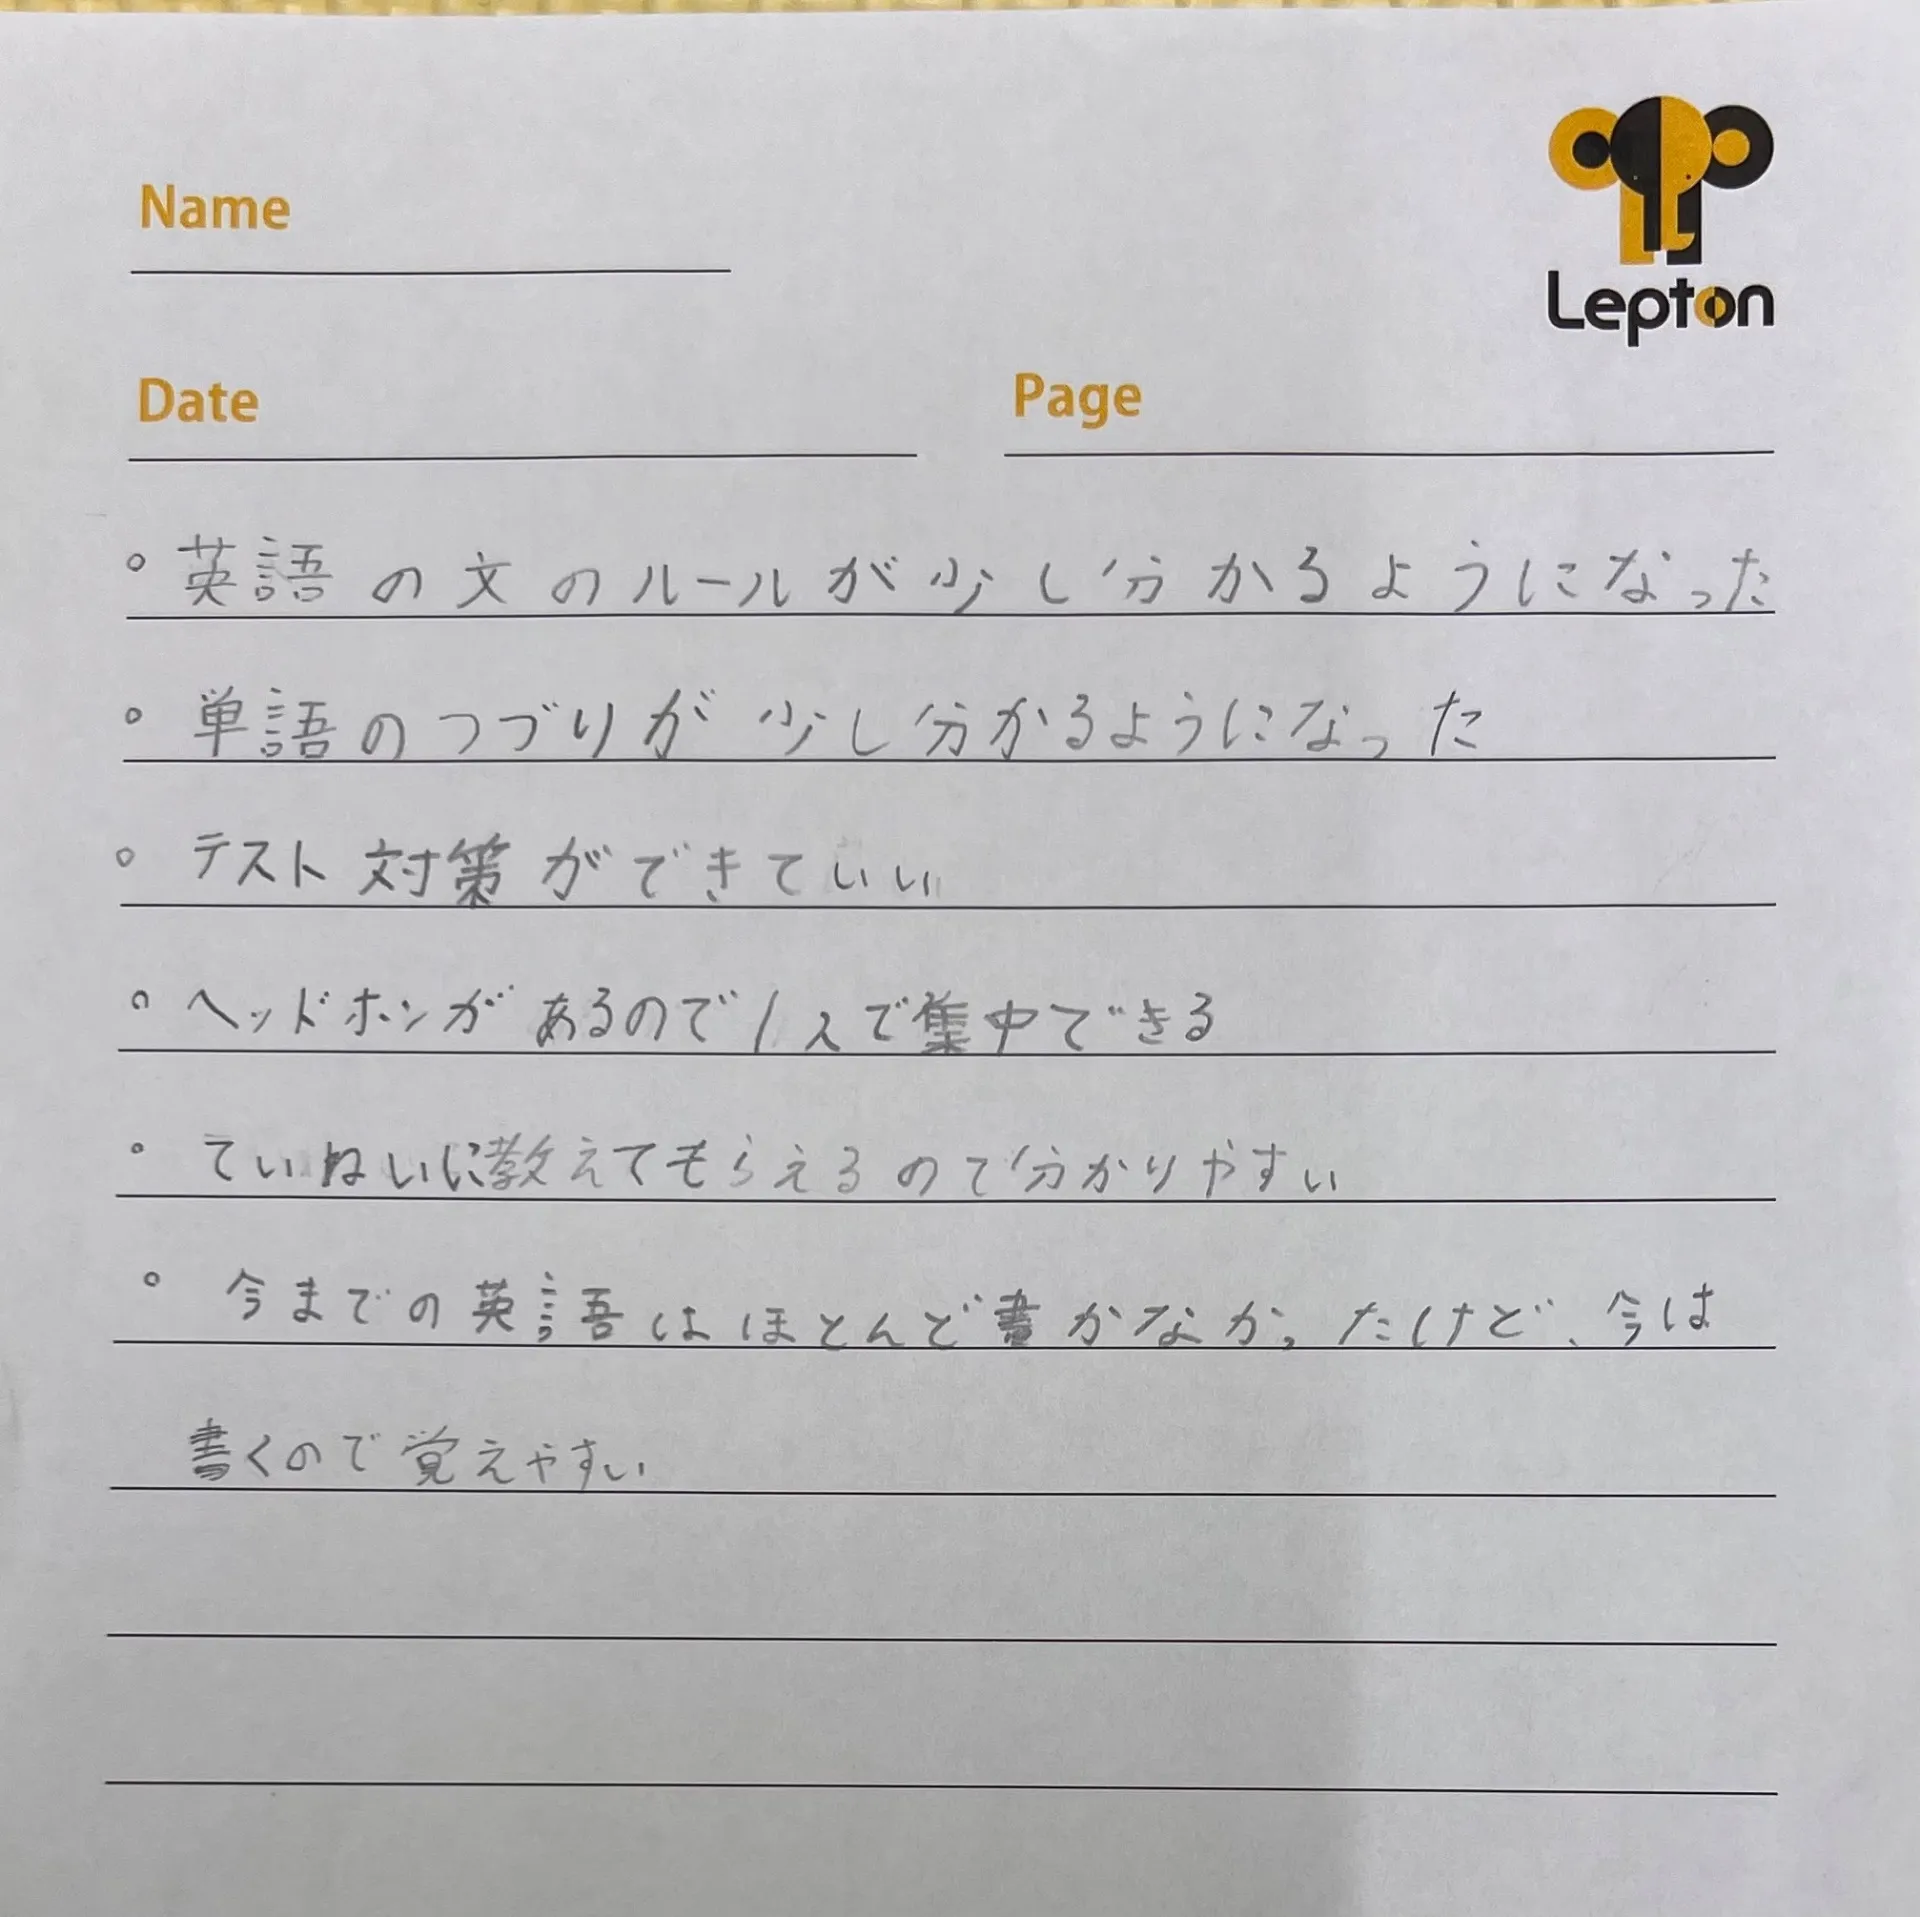 Name
Lepton
Date
Page
。英語の文のルールが少し分かるようになった
。単語のつづりが少し分かるようになった
。テスト対策ができていい
。ヘッドホンがあるので1人で集中できる
。ていねいに教えてもらえるので分かりやすい
。今までの英語はほとんど書かなかったけど、今は
書くので覚えやすい